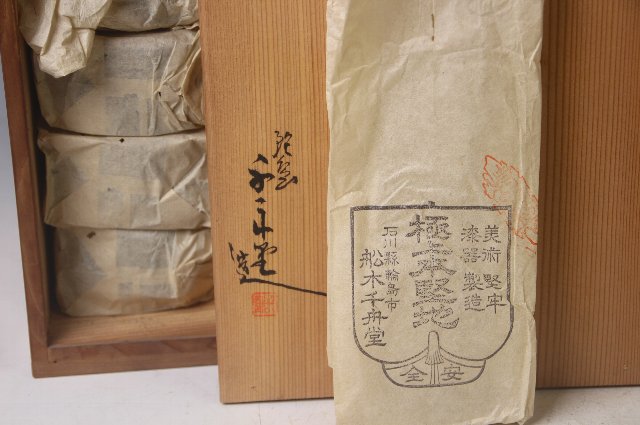 美術堅牢
漆器製造
極上本堅地
石川縣輪島市
舩木千舟堂
安全
千舟堂
造